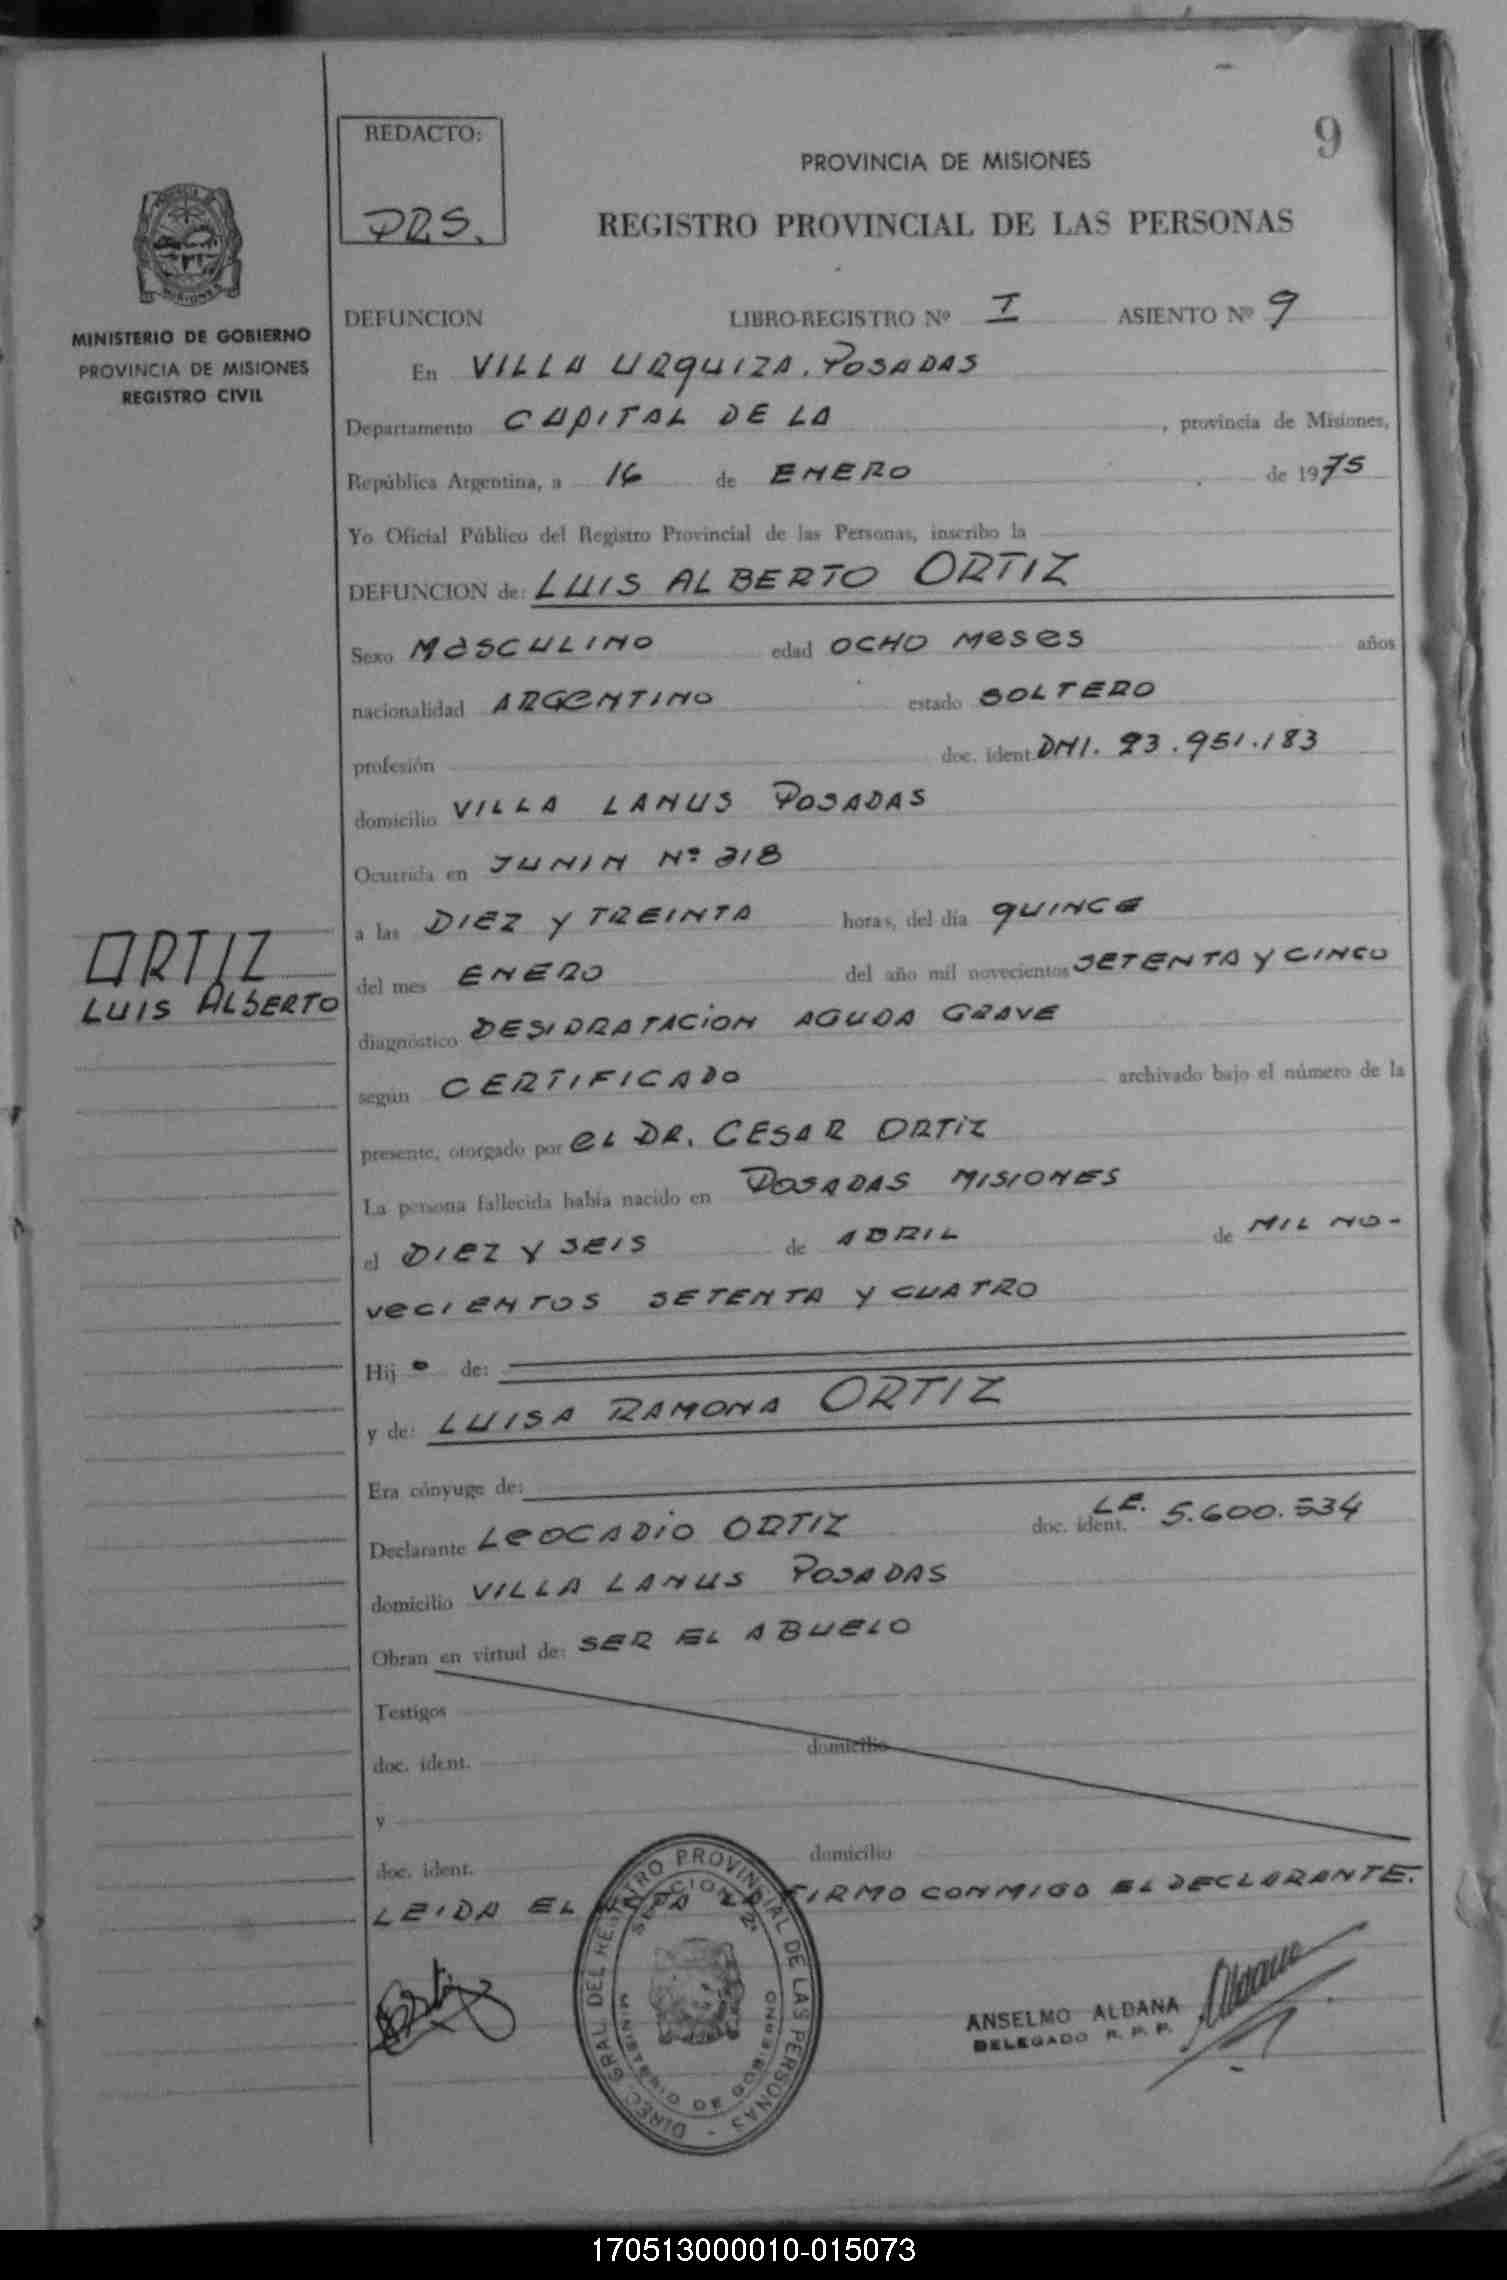 REDACTO:
DRS.
9
PROVINCIA DE MISIONES
REGISTRO PROVINCIAL DE LAS PERSONAS
PROVINCIA DE
MISIONES
MINISTERIO DE GOBIERNO
PROVINCIA DE MISIONES
REGISTRO CIVIL
DEFUNCION LIBRO-REGISTRO Nº I ASIENTO Nº 9
En VILLA URQUIZA. POSADAS
Departamento CAPITAL DE LA , provincia de Misiones,
República Argentina, a 16 de ENERO de 1975
Yo Oficial Público del Registro Provincial de las Personas, inscribo la
DEFUNCION de: LUIS ALBERTO ORTIZ
Sexo MASCULINO edad OCHO MESES años
nacionalidad ARGENTINO estado SOLTERO
profesión doc. ident. DNI. 23.951.183
domicilio VILLA LANUS POSADAS
Ocurrida en JUNIN Nº 318
a las DIEZ Y TREINTA horas, del día QUINCE
del mes ENERO del año mil novecientos SETENTA Y CINCO
diagnóstico DESIDRATACION AGUDA GRAVE
según CERTIFICADO archivado bajo el número de la
presente, otorgado por EL DR. CESAR ORTIZ
La persona fallecida había nacido en POSADAS MISIONES
el DIEZ Y SEIS de ABRIL de MIL NO-
VECIENTOS SETENTA Y CUATRO
Hijo de:
y de: LUISA RAMONA ORTIZ
Era cónyuge de:
Declarante LEOCADIO ORTIZ doc. ident. L.E. 5.600.534
domicilio VILLA LANUS POSADAS
Obran en virtud de: SER EL ABUELO
Testigos
doc. ident. domicilio
y
doc. ident. domicilio
LEIDA EL ACTA LA FIRMO CONMIGO EL DECLARANTE.
ORTIZ
LUIS ALBERTO
DIREC. GRAL. DEL REGISTRO PROVINCIAL DE LAS PERSONAS -
SECCION 2ª
MINISTERIO DE GOBIERNO
ANSELMO ALDANA
DELEGADO R. P. P.
170513000010-015073